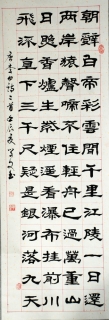 朝辭白帝彩雲間千里江陵一日還
兩岸猿聲啼不住輕舟已過萬重山
日照香爐生紫煙遙看瀑布挂前川
飛流直下三千尺疑是銀河落九天
唐李白詩二首